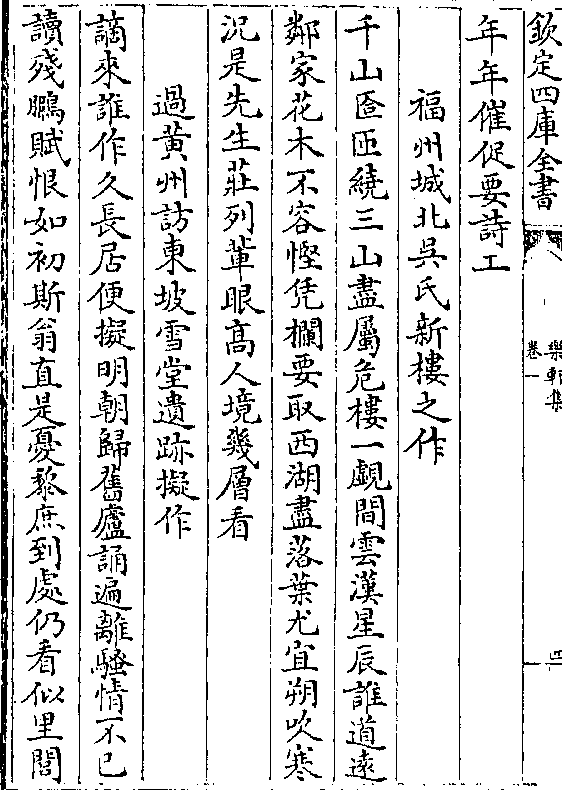 欽定四庫全書
樂軒集
卷一
四
年年催促要詩工
福州城北吳氏新樓之作
千山匼匝繞三山盡屬危樓一覷間雲漢星辰誰道遠
鄰家花木不容慳凭欄要取西湖盡落葉尤宜朔吹寒
況是先生莊列輩眼高人境幾層看
過黃州訪東坡雪堂遺跡擬作
謫來誰作久長居便擬明朝歸舊廬誦遍離騷情不已
讀殘鵩賦恨如初斯翁直是憂黎庶到處仍看似里閭